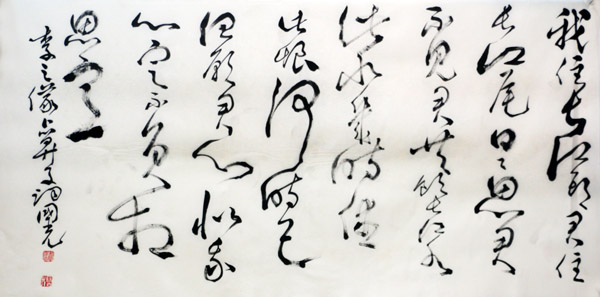 我住长江头君住
长江尾日日思君
不见君共饮长江水
此水几时休
此恨何时已
但愿君心似我
心定不负相
思意
李之儀卜算子詞國光